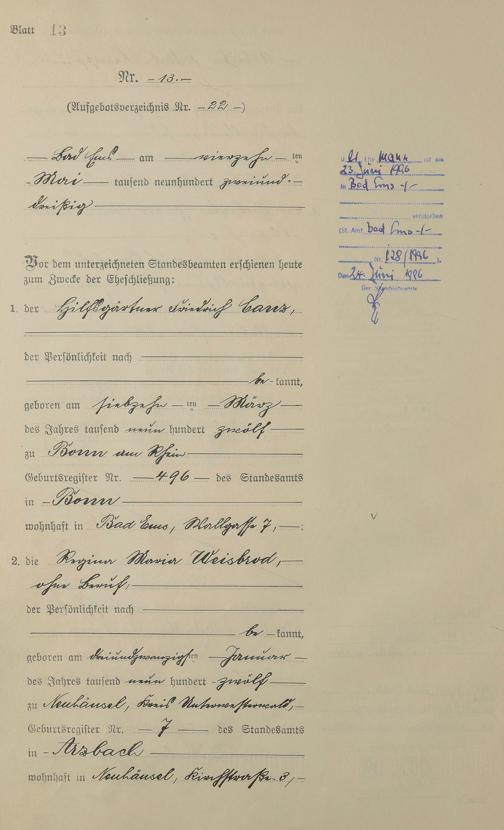 Blatt 13
Nr. 13.
(Aufgebotsverzeichnis Nr. 22)
Bad Ems am vierzehnten
Mai tausend neunhundert zweiund-
dreißig
Vor dem unterzeichneten Standesbeamten erschienen heute
zum Zwecke der Eheschließung:
1. der Hilfsgärtner Friedrich Canz,
der Persönlichkeit nach
be-kannt,
geboren am siebzehnten März
des Jahres tausend neun hundert zwölf
zu Bonn am Rhein
Geburtsregister Nr. 496 des Standesamts
in Bonn
wohnhaft in Bad Ems, Wallgasse 7,
2. die Regina Maria Weisbrod,
ohne Beruf,
der Persönlichkeit nach
be-kannt,
geboren am dreiundzwanzigsten Januar
des Jahres tausend neun hundert zwölf
zu Neuhäusel, Kreis Unterwesterwald,
Geburtsregister Nr. 7 des Standesamts
in Arzbach
wohnhaft in Neuhäusel, Kirchstraße 3,
Mann ist am
23. Juni 1996
in Bad Ems
verstorben
(St. Amt Bad Ems
Nr. 128/1996).
Den 24. Juni 1996
Der Standesbeamte